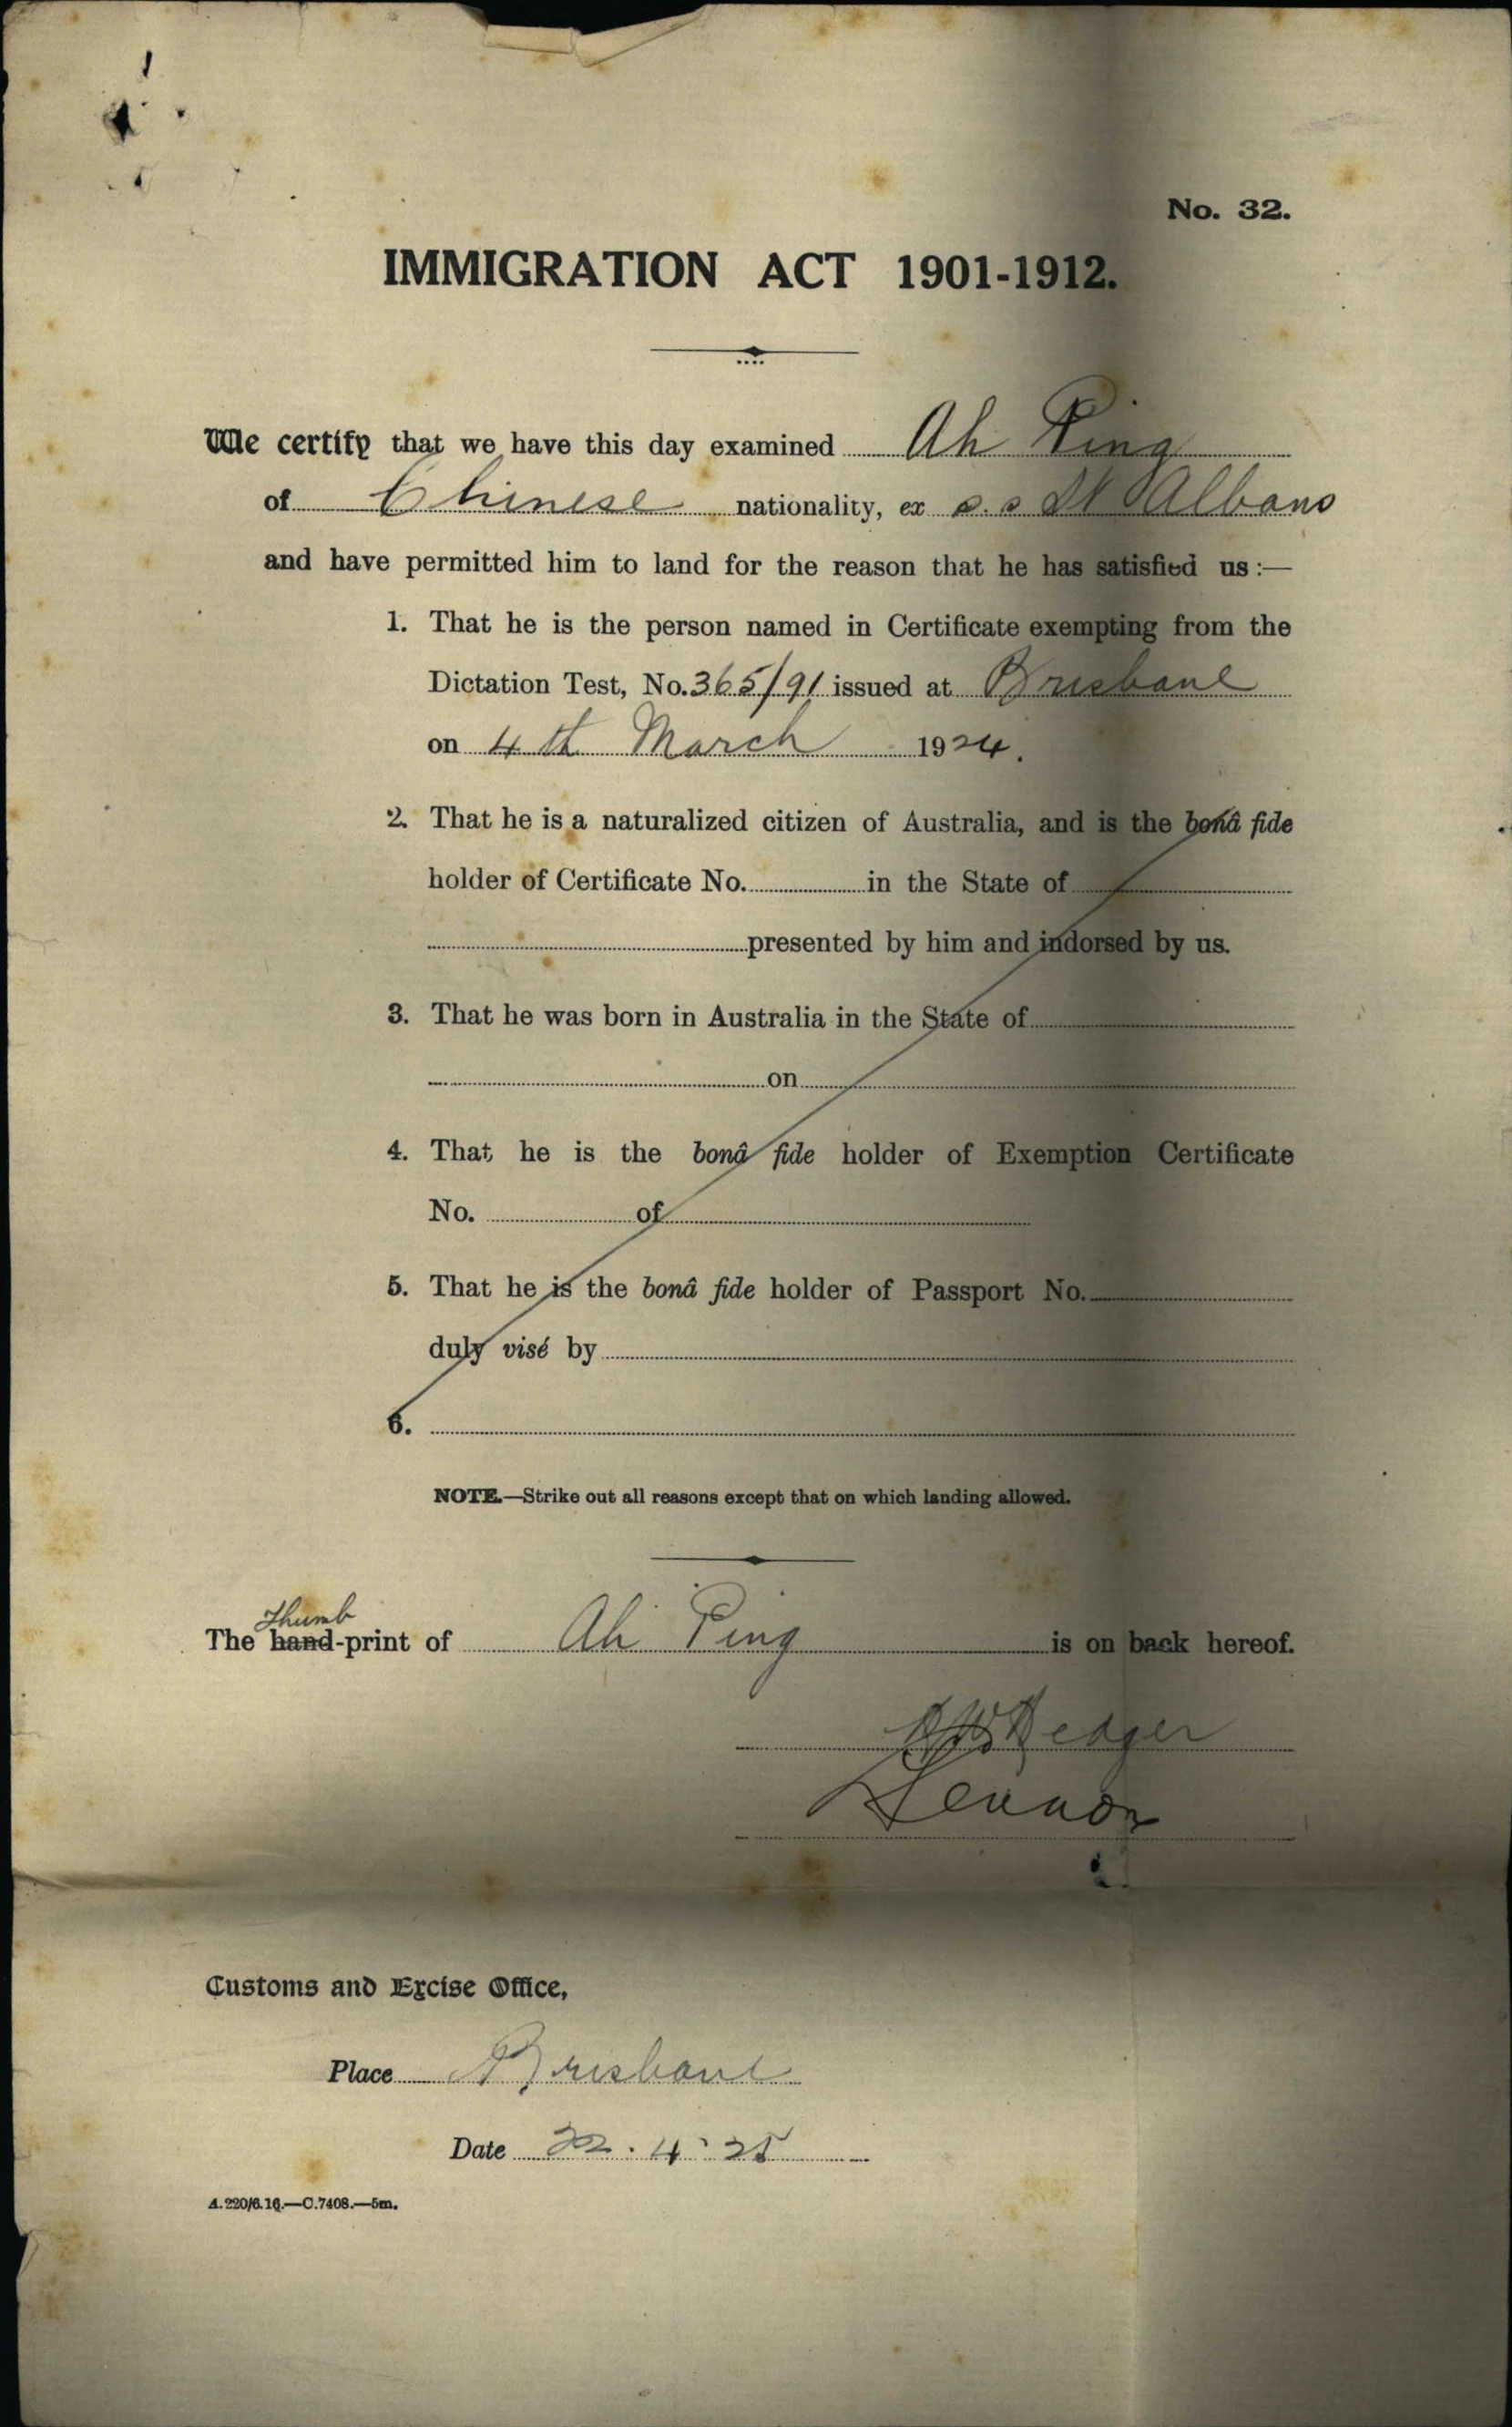 No. 32.
IMMIGRATION ACT 1901-1912.
We certify that we have this day examined Ah Ping
of Chinese nationality, ex s.s St Albans
and have permitted him to land for the reason that he has satisfied us :—
1. That he is the person named in Certificate exempting from the
Dictation Test, No. 365/91 issued at Brisbane
on 4th March 1924.
2. That he is a naturalized citizen of Australia, and is the bonâ fide
holder of Certificate No. in the State of
presented by him and indorsed by us.
3. That he was born in Australia in the State of
on
4. That he is the bonâ fide holder of Exemption Certificate
No. of
5. That he is the bonâ fide holder of Passport No.
duly visé by
6.
NOTE.—Strike out all reasons except that on which landing allowed.
Thumb
The hand-print of Ah Ping is on back hereof.
Lennon
Customs and Excise Office,
Place Brisbane
Date 22.4.25
A.220/6.16.—C.7408.—5m.